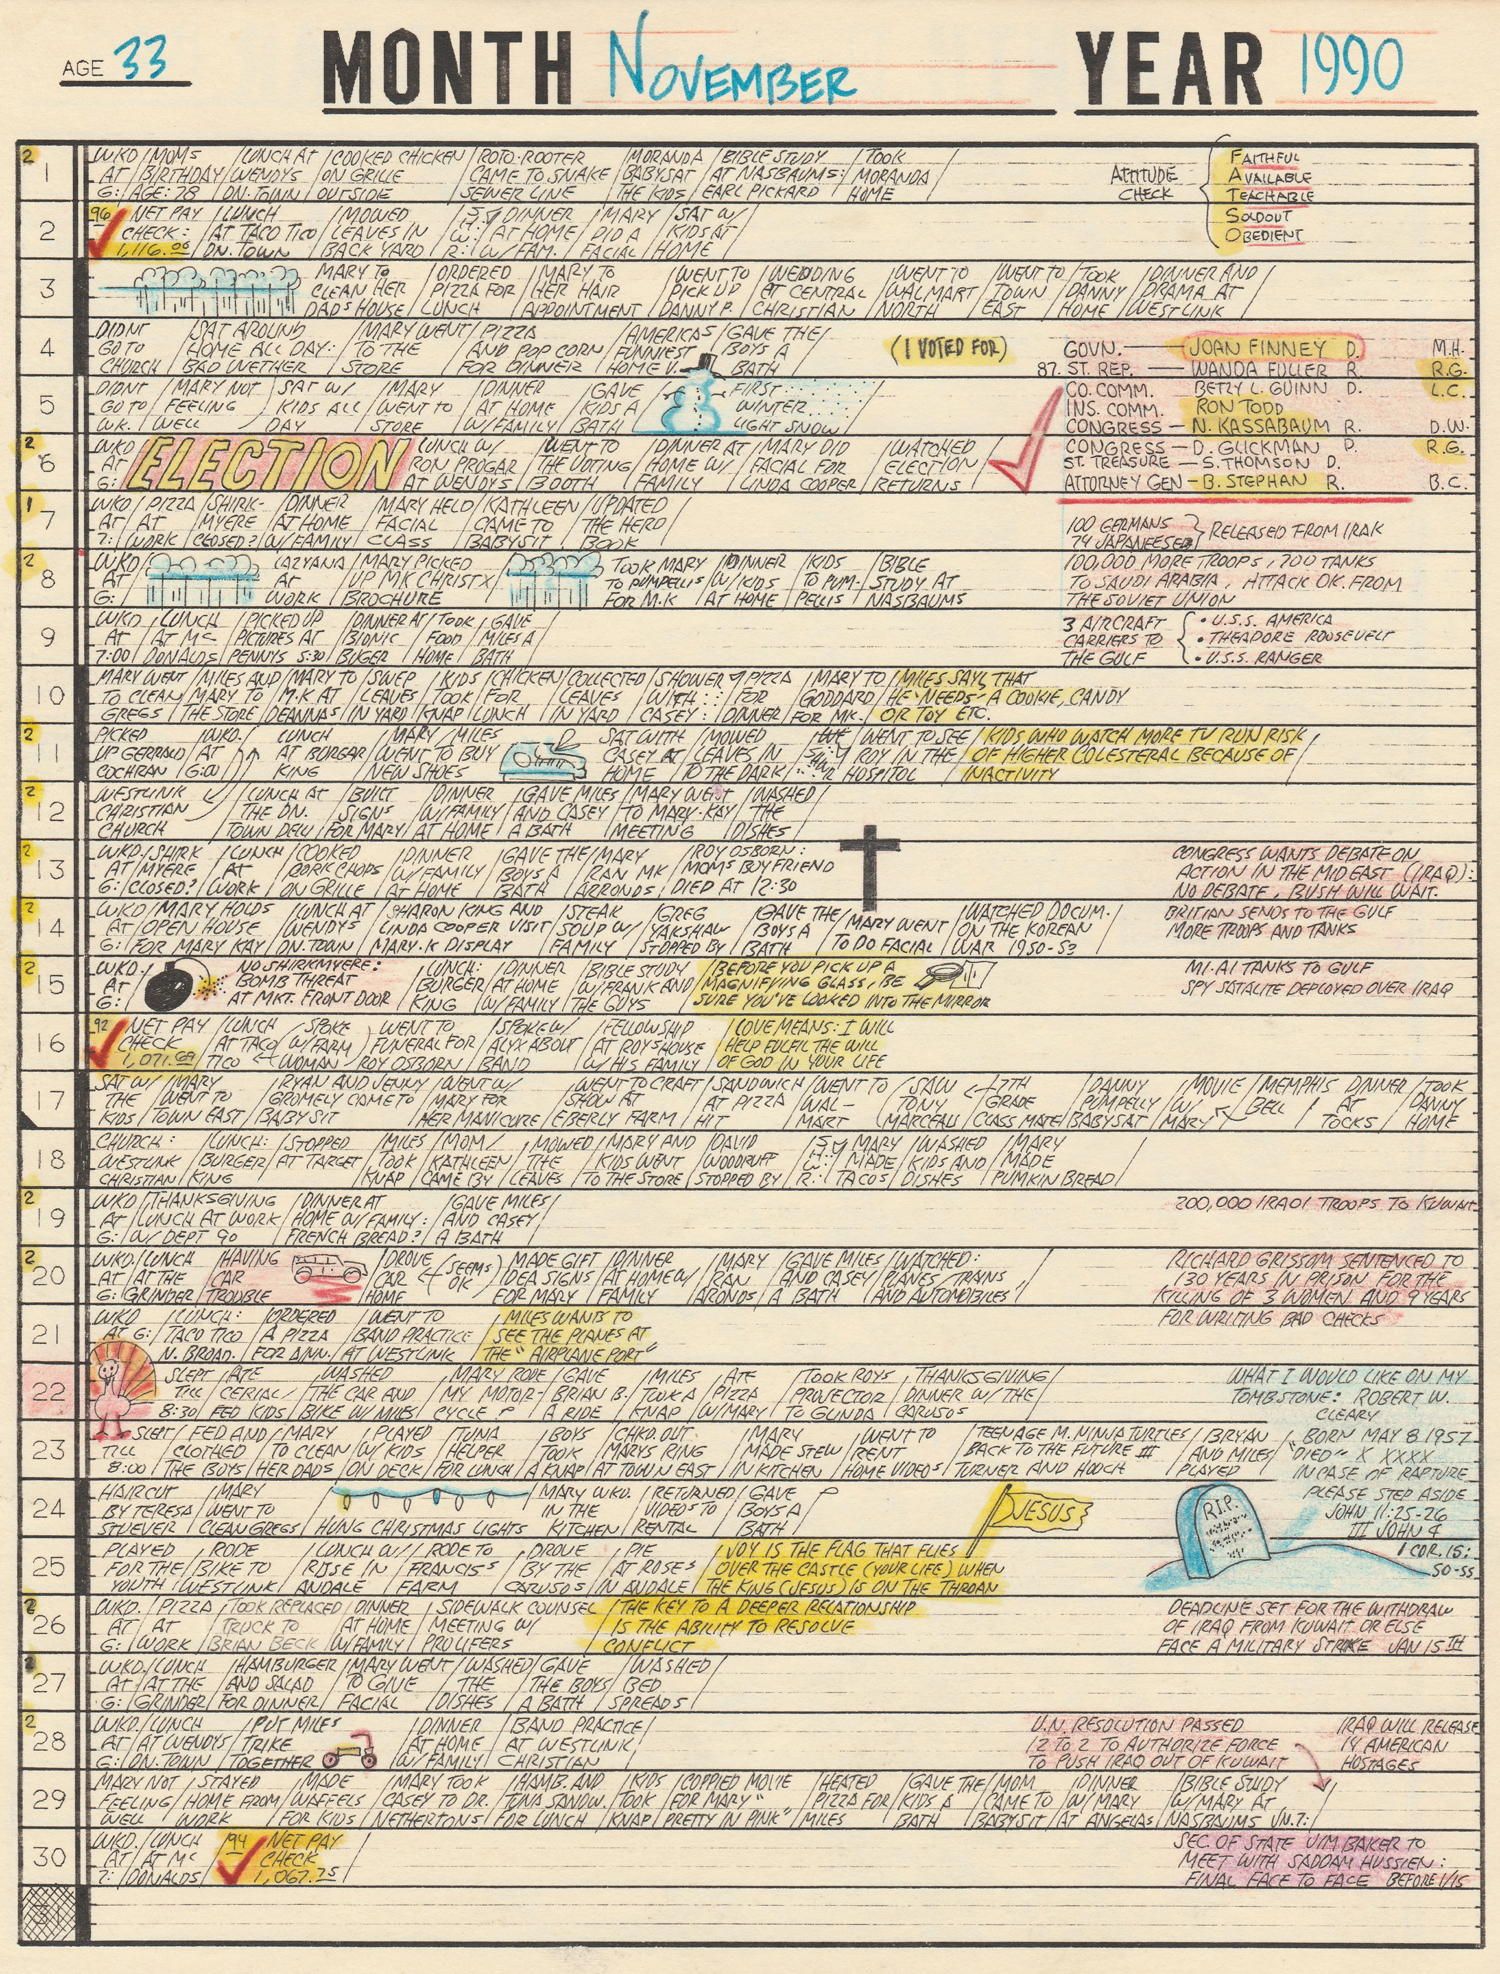 AGE 33 MONTH NOVEMBER YEAR 1990
2
1
WKD / MOMS / LUNCH AT / COOKED CHICKEN / ROTO-ROOTER / MORANDA / BIBLE STUDY / TOOK
AT / BIRTHDAY / WENDYS / ON GRILLE / CAME TO SNAKE / BABYSAT / AT NASBAUMS: / MORANDA
6: / AGE: 78 / DN. TOWN / OUTSIDE / SEWER LINE / THE KIDS / EARL PICKARD / HOME
ATTITUDE
CHECK
FAITHFUL
AVAILABLE
TEACHABLE
SOLDOUT
OBEDIENT
2
96 NET PAY / LUNCH / MOWED / DINNER / MARY / SAT W/
CHECK: / AT TACO TICO / LEAVES IN / AT HOME / DID A / KIDS AT
1,116.06 / DN. TOWN / BACK YARD / W/ FAM. / FACIAL / HOME
3
MARY TO / ORDERED / MARY TO / WENT TO / WEDDING / WENT TO / WENT TO / TOOK / DINNER AND
CLEAN HER / PIZZA FOR / HER HAIR / PICK UP / AT CENTRAL / WALMART / TOWN / DANNY / DRAMA AT
DADS HOUSE / LUNCH / APPOINTMENT / DANNY P. / CHRISTIAN / NORTH / EAST / HOME / WESTLINK
4
DIDNT / SAT AROUND / MARY WENT / PIZZA / AMERICAS / GAVE THE
GO TO / HOME ALL DAY: / TO THE / AND POP CORN / FUNNIEST / BOYS A
CHURCH / BAD WETHER / STORE / FOR DINNER / HOME V. / BATH
(I VOTED FOR)
GOVN. — JOAN FINNEY D. M.H.
87. ST. REP. — WANDA FULLER R. R.G.
CO. COMM. BETZY L. GUINN D. L.C.
INS. COMM. RON TODD
CONGRESS — N. KASSABAUM R. D.W.
CONGRESS — D. GLICKMAN D. R.G.
ST. TREASURE — S. THOMSON D.
ATTORNEY GEN — B. STEPHAN R. B.C.
5
DIDNT / MARY NOT / SAT W/ / MARY / DINNER / GAVE / FIRST
GO TO / FEELING / KIDS ALL / WENT TO / AT HOME / KIDS A / WINTER
WK. / WELL / DAY / STORE / W/ FAMILY / BATH / LIGHT SNOW
2
6
WKD ELECTION LUNCH W/ / WENT TO / DINNER AT / MARY DID / WATCHED
AT RON PROGAR / THE VOTING / HOME W/ / FACIAL FOR / ELECTION
6: AT WENDYS / BOOTH / FAMILY / LINDA COOPER / RETURNS
1
7
WKD / PIZZA / SHIRK- / DINNER / MARY HELD / KATHLEEN / UPDATED
AT / AT / MYERE / AT HOME / FACIAL / CAME TO / THE HERO
7: / WORK / CLOSED? / W/ FAMILY / CLASS / BABYSIT / BOOK
100 GERMANS
74 JAPANEESE RELEASED FROM IRAK
2
8
WKD / LAZYANA / MARY PICKED / TOOK MARY / DINNER / KIDS / BIBLE
AT / AT / UP MK CHRISTX / TO PUMPELLIS / W/ KIDS / TO PUM- / STUDY AT
6: / WORK / BROCHURE / FOR M.K / AT HOME / PELLIS / NASBAUMS
100,000 MORE TROOPS, 700 TANKS
TO SAUDI ARABIA, ATTACK OK. FROM
THE SOVIET UNION
9
WKD / LUNCH / PICKED UP / DINNER AT / TOOK / GAVE
AT / AT MC / PICTURES AT / BIONIC / FOOD / MILES A
7:00 / DONALDS / PENNYS 5:30 / BUGER / HOME / BATH
3 AIRCRAFT
CARRIERS TO
THE GULF
• U.S.S. AMERICA
• THEADORE ROOSEVELT
• U.S.S. RANGER
10
MARY WENT / MILES AND / MARY TO / SWEP / KIDS / CHICKEN / COLLECTED / SHOWER / PIZZA / MARY TO / MILES SAYS THAT
TO CLEAN / MARY TO / M.K AT / LEAVES / TOOK / FOR / LEAVES / WITH: / FOR / GODDARD / HE "NEEDS" A COOKIE, CANDY
GREGS / THE STORE / DEANNAS / IN YARD / KNAP / LUNCH / IN YARD / CASEY: / DINNER / FOR MK. / OR TOY ETC.
2
11
PICKED / WKD. / LUNCH / MARY / MILES / SAT WITH / MOWED / WENT TO SEE / KIDS WHO WATCH MORE TV RUN RISK
UP GERRALD / AT / AT BURGAR / WENT TO BUY / CASEY AT / LEAVES IN / ROY IN THE / OF HIGHER COLESTERAL BECAUSE OF
COCHRAN / 6:00 / KING / NEW SHOES / HOME / TO THE DARK / HOSPITOL / INACTIVITY
2
12
WESTLINK / LUNCH AT / BUILT / DINNER / GAVE MILES / MARY WENT / WASHED
CHRISTIAN / THE DN. / SIGNS / W/ FAMILY / AND CASEY / TO MARY-KAY / THE
CHURCH / TOWN DELU / FOR MARY / AT HOME / A BATH / MEETING / DISHES
2
13
WKD. / SHIRK / LUNCH / COOKED / DINNER / GAVE THE / MARY / ROY OSBORN:
AT / MYERE / AT / PORK CHOPS / W/ FAMILY / BOYS A / RAN MK / MOMS BOYFRIEND
6: / CLOSED? / WORK / ON GRILLE / AT HOME / BATH / ARRONDS / DIED AT 12:30
CONGRESS WANTS DEBATE ON
ACTION IN THE MID EAST (IRAQ):
NO DEBATE, BUSH WILL WAIT.
2
14
WKD / MARY HOLDS / LUNCH AT / SHARON KING AND / STEAK / GREG / GAVE THE / MARY WENT / WATCHED DOCUM.
AT / OPEN HOUSE / WENDYS / LINDA COOPER VISIT / SOUP W/ / YAKSHAW / BOYS A / TO DO FACIAL / ON THE KOREAN
6: / FOR MARY KAY / DN. TOWN / MARY-K DISPLAY / FAMILY / STOPPED BY / BATH / WAR 1950-53
BRITIAN SENDS TO THE GULF
MORE TROOPS AND TANKS
2
15
WKD. / NO SHIRKMYERE: / LUNCH: / DINNER / BIBLE STUDY / BEFORE YOU PICK UP A
AT / BOMB THREAT / BURGER / AT HOME / W/ FRANK AND / MAGNIFYING GLASS, BE
6: / AT MKT. FRONT DOOR / KING / W/ FAMILY / THE GUYS / SURE YOU'VE LOOKED INTO THE MIRROR
M1-A1 TANKS TO GULF
SPY SATALITE DEPLOYED OVER IRAQ
16
92 NET PAY / LUNCH / SPOKE / WENT TO / SPOKE W/ / FELLOWSHIP / LOVE MEANS: I WILL
CHECK / AT TACO / W/ FARM / FUNERAL FOR / ALYX ABOUT / AT ROYS HOUSE / HELP FULFIL THE WILL
1,071.69 / TICO / WOMAN / ROY OSBORN / BAND / W/ HIS FAMILY / OF GOD IN YOUR LIFE
17
SAT W/ / MARY / RYAN AND JENNY / WENT W/ / WENT TO CRAFT / SANDWICH / WENT TO / SAW / 7TH / DANNY / MOVIE / MEMPHIS / DINNER / TOOK
THE / WENT TO / GROMELY CAME TO / MARY FOR / SHOW AT / AT PIZZA / WAL- / TONY / GRADE / PUMPELLY / W/ / BELL / AT / DANNY
KIDS / TOWN EAST / BABYSIT / HER MANICURE / EBERLY FARM / HIT / MART / MARCEAU / CLASS MATE / BABYSAT / MARY / TOCKS / HOME
18
CHURCH: / LUNCH: / STOPPED / MILES / MOM / MOWED / MARY AND / DAVID / MARY / WASHED / MARY
WESTLINK / BURGER / AT TARGET / TOOK / KATHLEEN / THE / KIDS WENT / WOODRUFF / MADE / KIDS AND / MADE
CHRISTIAN / KING / KNAP / CAME BY / LEAVES / TO THE STORE / STOPPED BY / TACOS / DISHES / PUMKIN BREAD
2
19
WKD / THANKSGIVING / DINNER AT / GAVE MILES
AT / LUNCH AT WORK / HOME W/ FAMILY: / AND CASEY
6: / W/ DEPT 90 / FRENCH BREAD? / A BATH
200,000 IRAQI TROOPS TO KUWAIT
2
20
WKD. / LUNCH / HAVING / DROVE (SEEMS / MADE GIFT / DINNER / MARY / GAVE MILES / WATCHED:
AT / AT THE / CAR / CAR OK) / IDEA SIGNS / AT HOME W/ / RAN / AND CASEY / PLANES, TRAINS
6: / GRINDER / TROUBLE / HOME / FOR MARY / FAMILY / ARONDS / A BATH / AND AUTOMOBILES
RICHARD GRISSOM SENTENCED TO
130 YEARS IN PRISON FOR THE
KILLING OF 3 WOMEN AND 9 YEARS
FOR WRITING BAD CHECKS
21
WKD / LUNCH: / ORDERED / WENT TO / MILES WANTS TO
AT 6: / TACO TICO / A PIZZA / BAND PRACTICE / SEE THE PLANES AT
N. BROAD. / FOR DINN. / AT WESTLINK / THE "AIRPLANE PORT"
22
SLEPT / ATE / WASHED / MARY RODE / GAVE / MILES / ATE / TOOK ROYS / THANKSGIVING
TILL / CERIAL / THE CAR AND / MY MOTOR- / BRIAN B. / TOOK A / PIZZA / PROJECTOR / DINNER W/ THE
8:30 / FED KIDS / BIKE W/ MILES / CYCLE / A RIDE / KNAP / W/ MARY / TO GLINDA / CARUSOS
WHAT I WOULD LIKE ON MY
TOMBSTONE: ROBERT W.
CLEARY
BORN MAY 8 1957
"DIED" X XXXX
IN CASE OF RAPTURE
PLEASE STEP ASIDE
JOHN 11:25-26
III JOHN 4
1 COR. 15:
50-55
23
SLEPT / FED AND / MARY / PLAYED / TUNA / BOYS / CHKD. OUT / MARY / WENT TO / TEENAGE M. NINJA TURTLES / BRYAN
TILL / CLOTHED / TO CLEAN / W/ KIDS / HELPER / TOOK / MARYS RING / MADE STEW / RENT / BACK TO THE FUTURE III / AND MILES
8:00 / THE BOYS / HER DADS / ON DECK / FOR LUNCH / A KNAP / AT TOWN EAST / IN KITCHEN / HOME VIDEOS / TURNER AND HOOCH / PLAYED
24
HAIRCUT / MARY / MARY WKD. / RETURNED / GAVE
BY TERESA / WENT TO / IN THE / VIDEOS TO / BOYS A
STUEVER / CLEAN GREGS / HUNG CHRISTMAS LIGHTS / KITCHEN / RENTAL / BATH
JESUS
R.I.P.
25
PLAYED / RODE / LUNCH W/ / RODE TO / DROVE / PIE / JOY IS THE FLAG THAT FLIES
FOR THE / BIKE TO / ROSE IN / FRANCIS / BY THE / AT ROSES / OVER THE CASTLE (YOUR LIFE) WHEN
YOUTH / WESTLINK / ANDALE / FARM / CARUSOS / IN ANDALE / THE KING (JESUS) IS ON THE THROAN
2
26
WKD. / PIZZA / TOOK REPLACED / DINNER / SIDEWALK COUNSEL / THE KEY TO A DEEPER RELATIONSHIP
AT / AT / TRUCK TO / AT HOME / MEETING W/ / IS THE ABILITY TO RESOLVE
6: / WORK / BRIAN BECK / W/ FAMILY / PROLIFERS / CONFLICT
DEADLINE SET FOR THE WITHDRAW
OF IRAQ FROM KUWAIT OR ELSE
FACE A MILITARY STRIKE JAN 15TH
2
27
WKD. / LUNCH / HAMBURGER / MARY WENT / WASHED / GAVE / WASHED
AT / AT THE / AND SALAD / TO GIVE / THE / THE BOYS / BED
6: / GRINDER / FOR DINNER / FACIAL / DISHES / A BATH / SPREADS
2
28
WKD. / LUNCH / PUT MILES / DINNER / BAND PRACTICE
AT / AT WENDYS / TRIKE / AT HOME / AT WESTLINK
6: / DN. TOWN / TOGETHER / W/ FAMILY / CHRISTIAN
U.N. RESOLUTION PASSED
12 TO 2 TO AUTHORIZE FORCE
TO PUSH IRAQ OUT OF KUWAIT
IRAQ WILL RELEASE
14 AMERICAN
HOSTAGES
29
MARY NOT / STAYED / MADE / MARY TOOK / HAMB. AND / KIDS / COPPIED MOVIE / HEATED / GAVE THE / MOM / DINNER / BIBLE STUDY
FEELING / HOME FROM / WAFFELS / CASEY TO DR. / TUNA SANDW. / TOOK / FOR MARY " / PIZZA FOR / KIDS A / CAME TO / W/ MARY / W/ MARY AT
WELL / WORK / FOR KIDS / NETHERTONS / FOR LUNCH / KNAP / PRETTY IN PINK" / MILES / BATH / BABYSIT / AT ANGELAS / NASBAUMS JN.7:
30
WKD. / LUNCH / 94 NET PAY
AT / AT MC / CHECK
7: / DONALDS / 1,067.75
SEC. OF STATE JIM BAKER TO
MEET WITH SADDAM HUSSIEN:
FINAL FACE TO FACE BEFORE 1/15